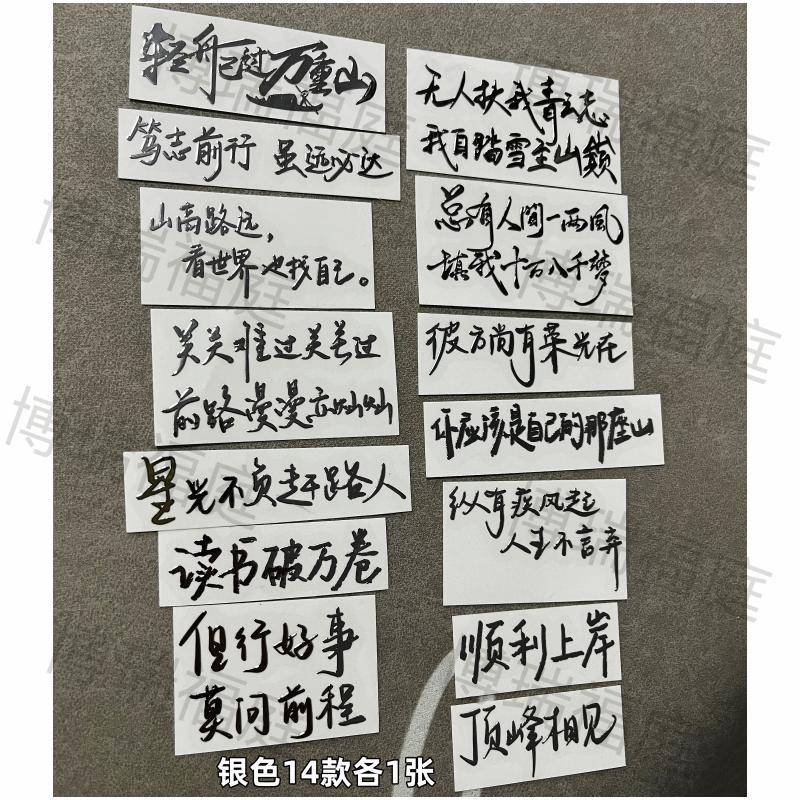 轻舟已过万重山
笃志前行 虽远必达
山高路远,
看世界也找自己。
关关难过关关过
前路漫漫亦灿灿
星光不负赶路人
读书破万卷
但行好事
莫问前程
无人扶我青云志
我自踏雪至山巅
总有人间一两风
填我十万八千梦
彼方尚有荣光在
你应该是自己的那座山
纵有疾风起
人生不言弃
顺利上岸
顶峰相见
银色14款各1张
博瑞福庭